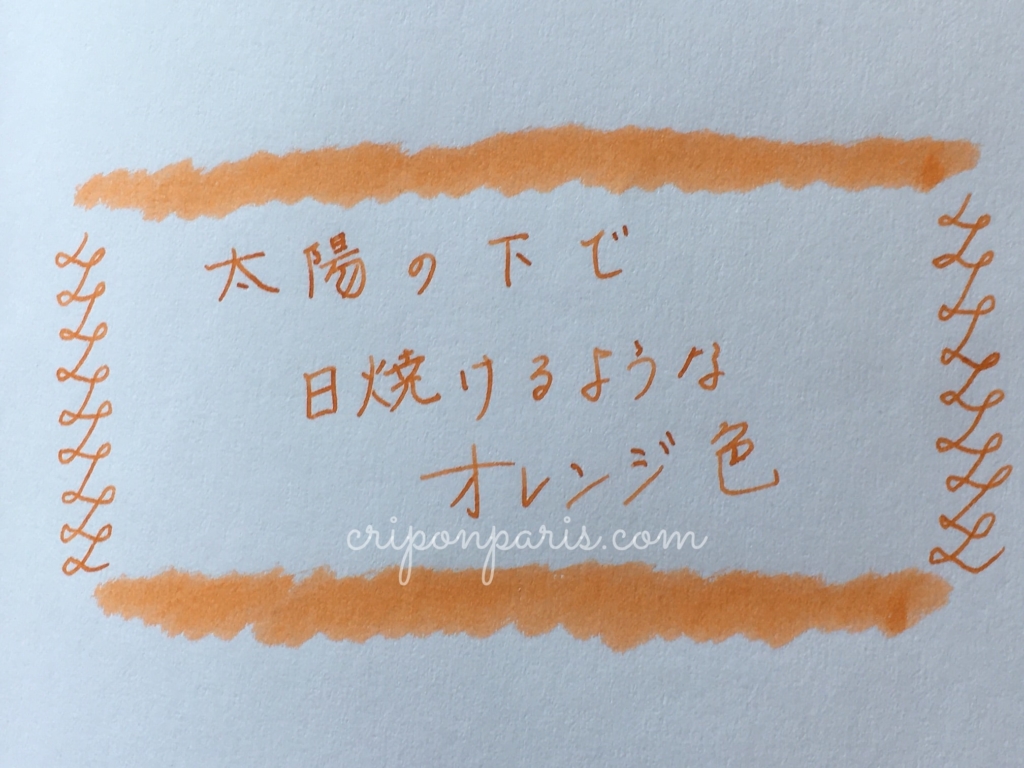 太陽の下で
日焼けるような
オレンジ色
criponparis.com